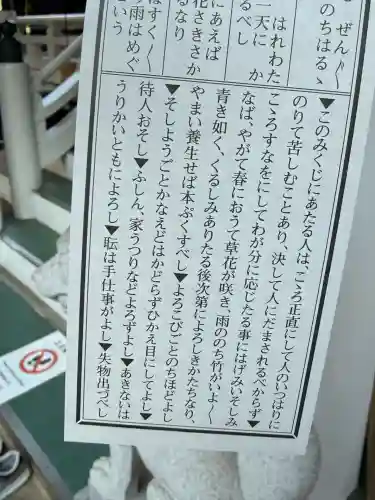 ぜん〳〵
のちはるゝ
はれわた
一天に か
るべし
にあえば
花さきさか
るなり
はすく〳〵
の雨はめぐ
という
▼このみくじにあたる人は、こゝろ正直にして人のいつはりに
のりて苦しむことあり、決して人にだまされるべからず▼
こゝろすなをにしてわが分に応じたる事にはげみいそしみ
なば、やがて春におうて草花が咲き、雨ののち竹がいよ〳〵
青き如く、くるしみありたる後次第によろしきかたちなり、
やまい養生せば本ぷくすべし▼よろこびごとのちほどよし
▼そしようごとかなえどはかどらずひかえ目にしてよし▼
待人おそし▼ふしん、家うつりなどよろずよし▼あきないは
うりかいともによろし▼転は手仕事がよし▼失物出づべし